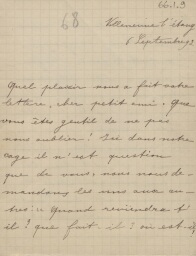 66.1.9
68
Villeneuve l'étang
6 Septembre 9
Quel plaisir nous a fait votre
lettre, cher petit ami. Que
vous êtes gentil de ne pas
nous oublier! Ici dans notre
cage il n'est question
que de vous; nous nous de-
mandons les uns aux au-
tres: Quand reviendra t'
il? que fait-il? où est-il,